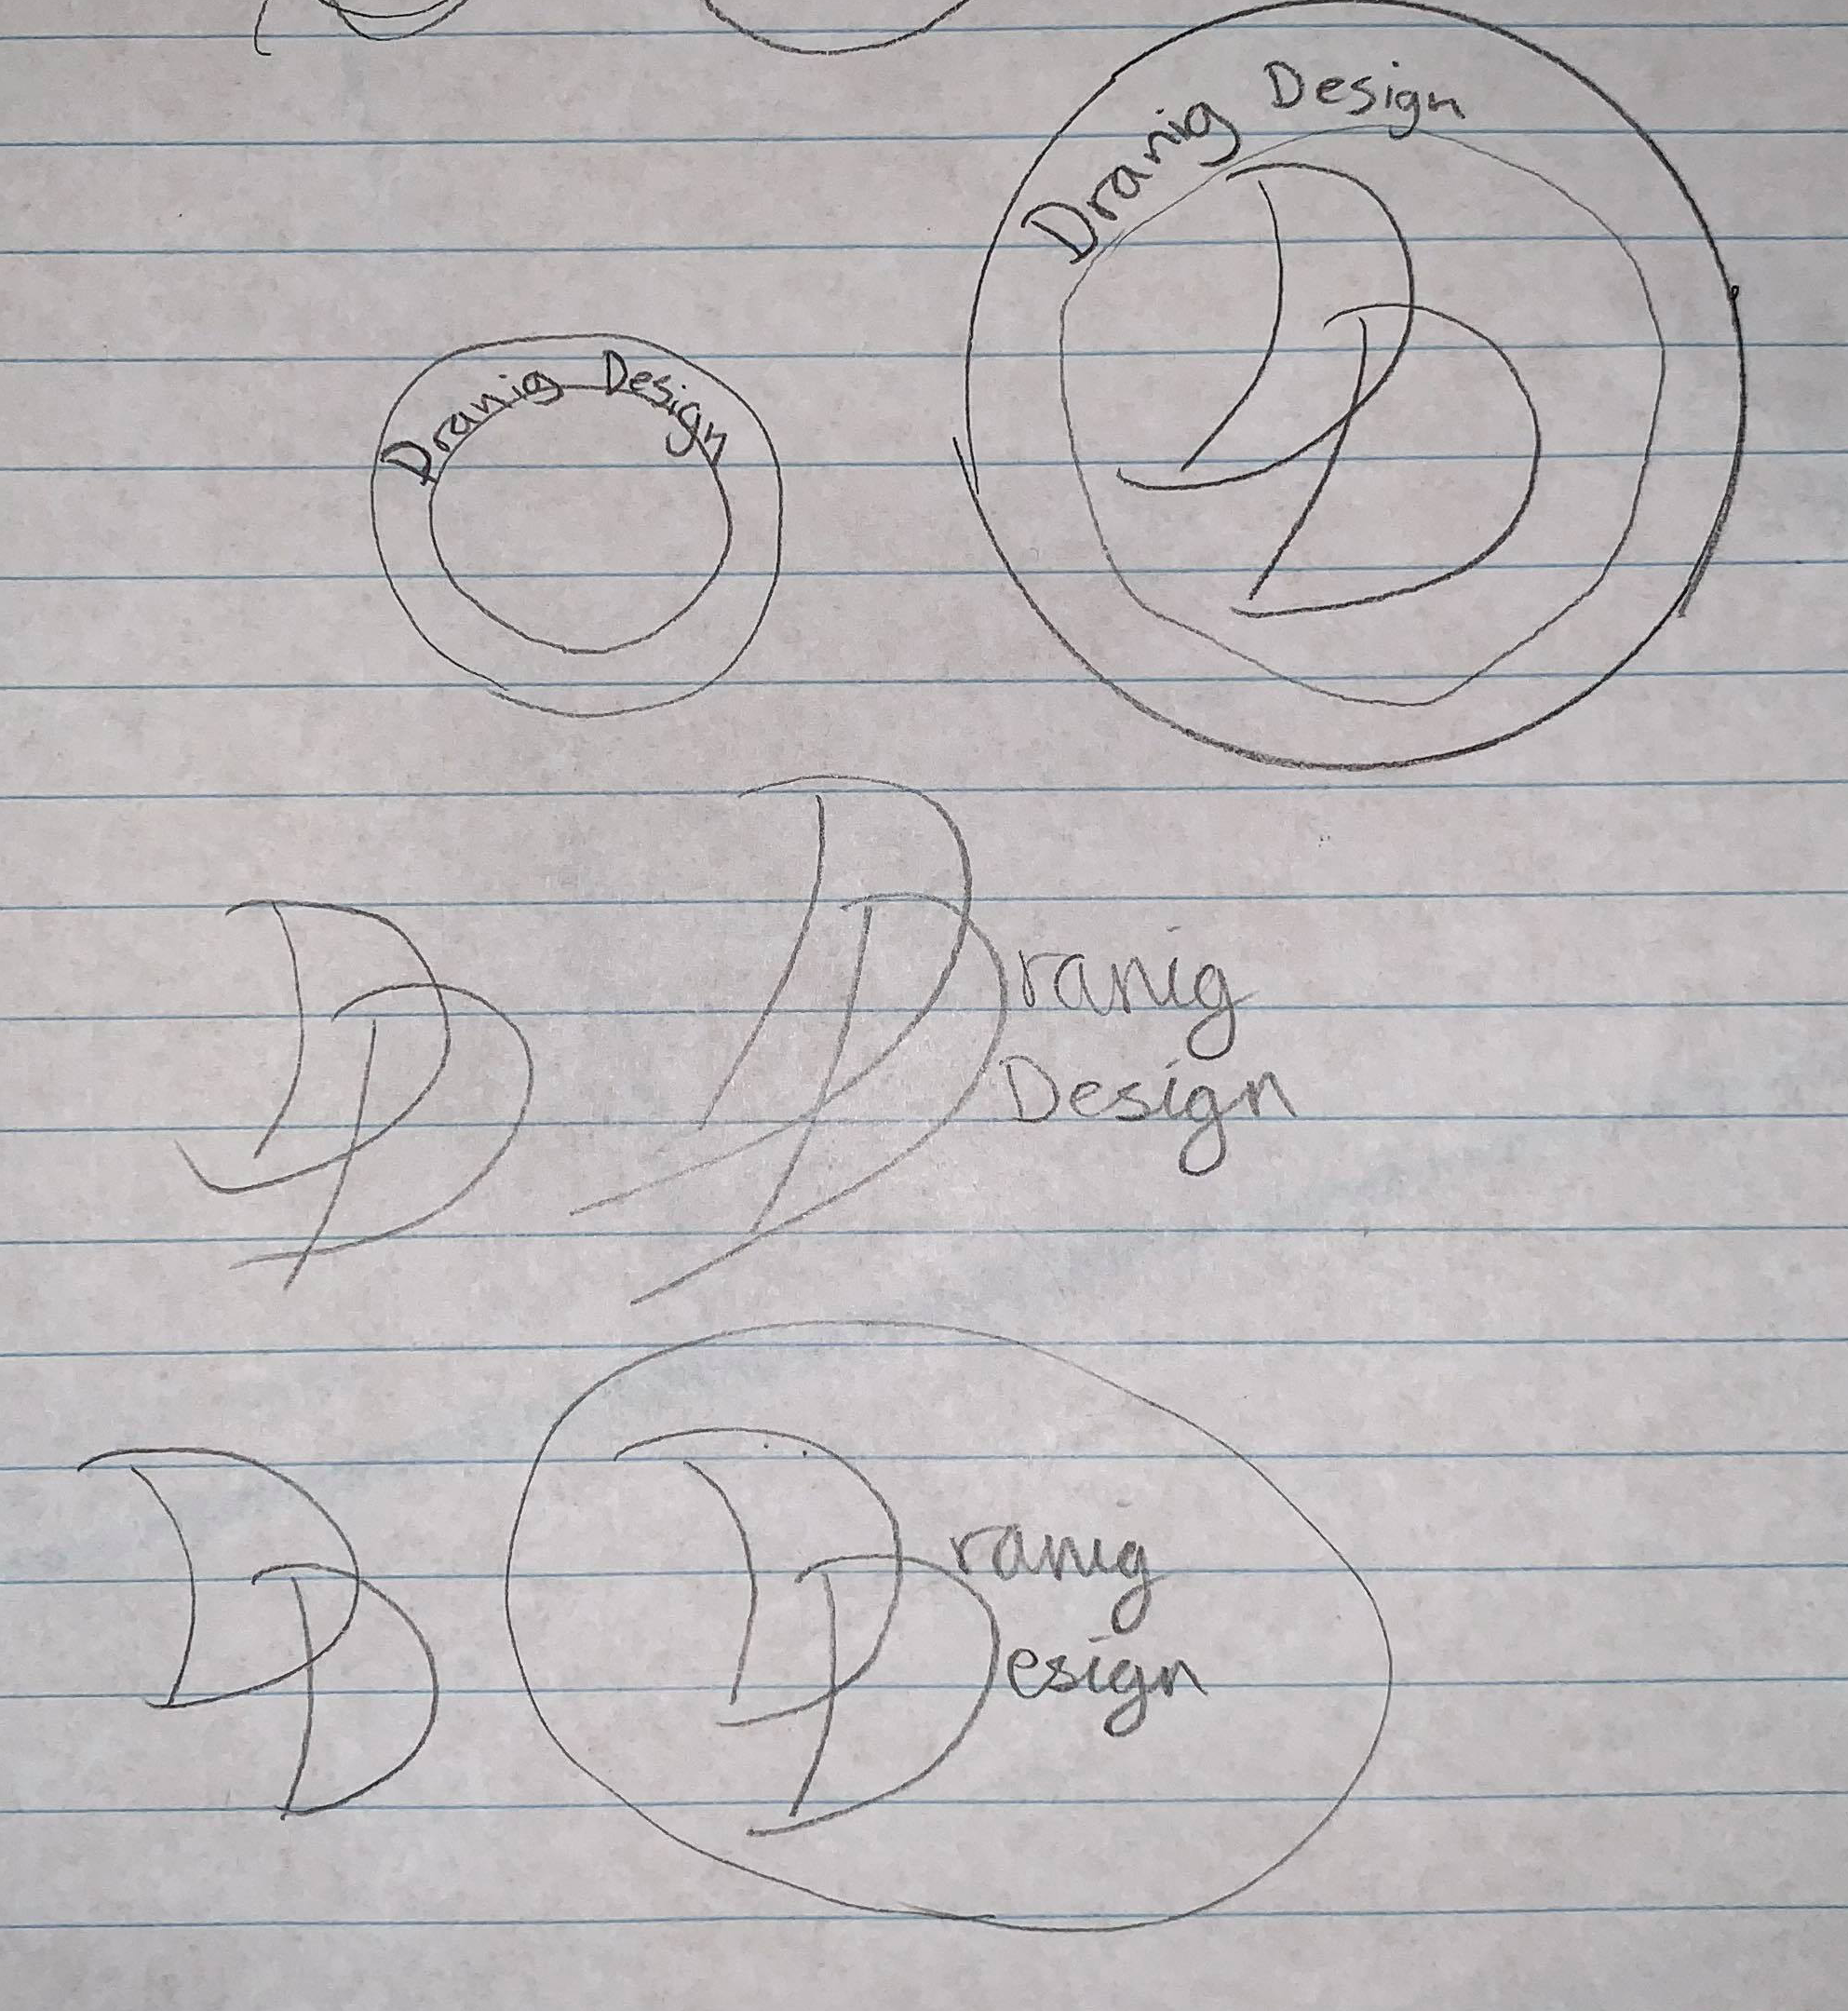 Dranig Design
Dranig Design
DD
DDranig
Design
DD
DDranig
esign